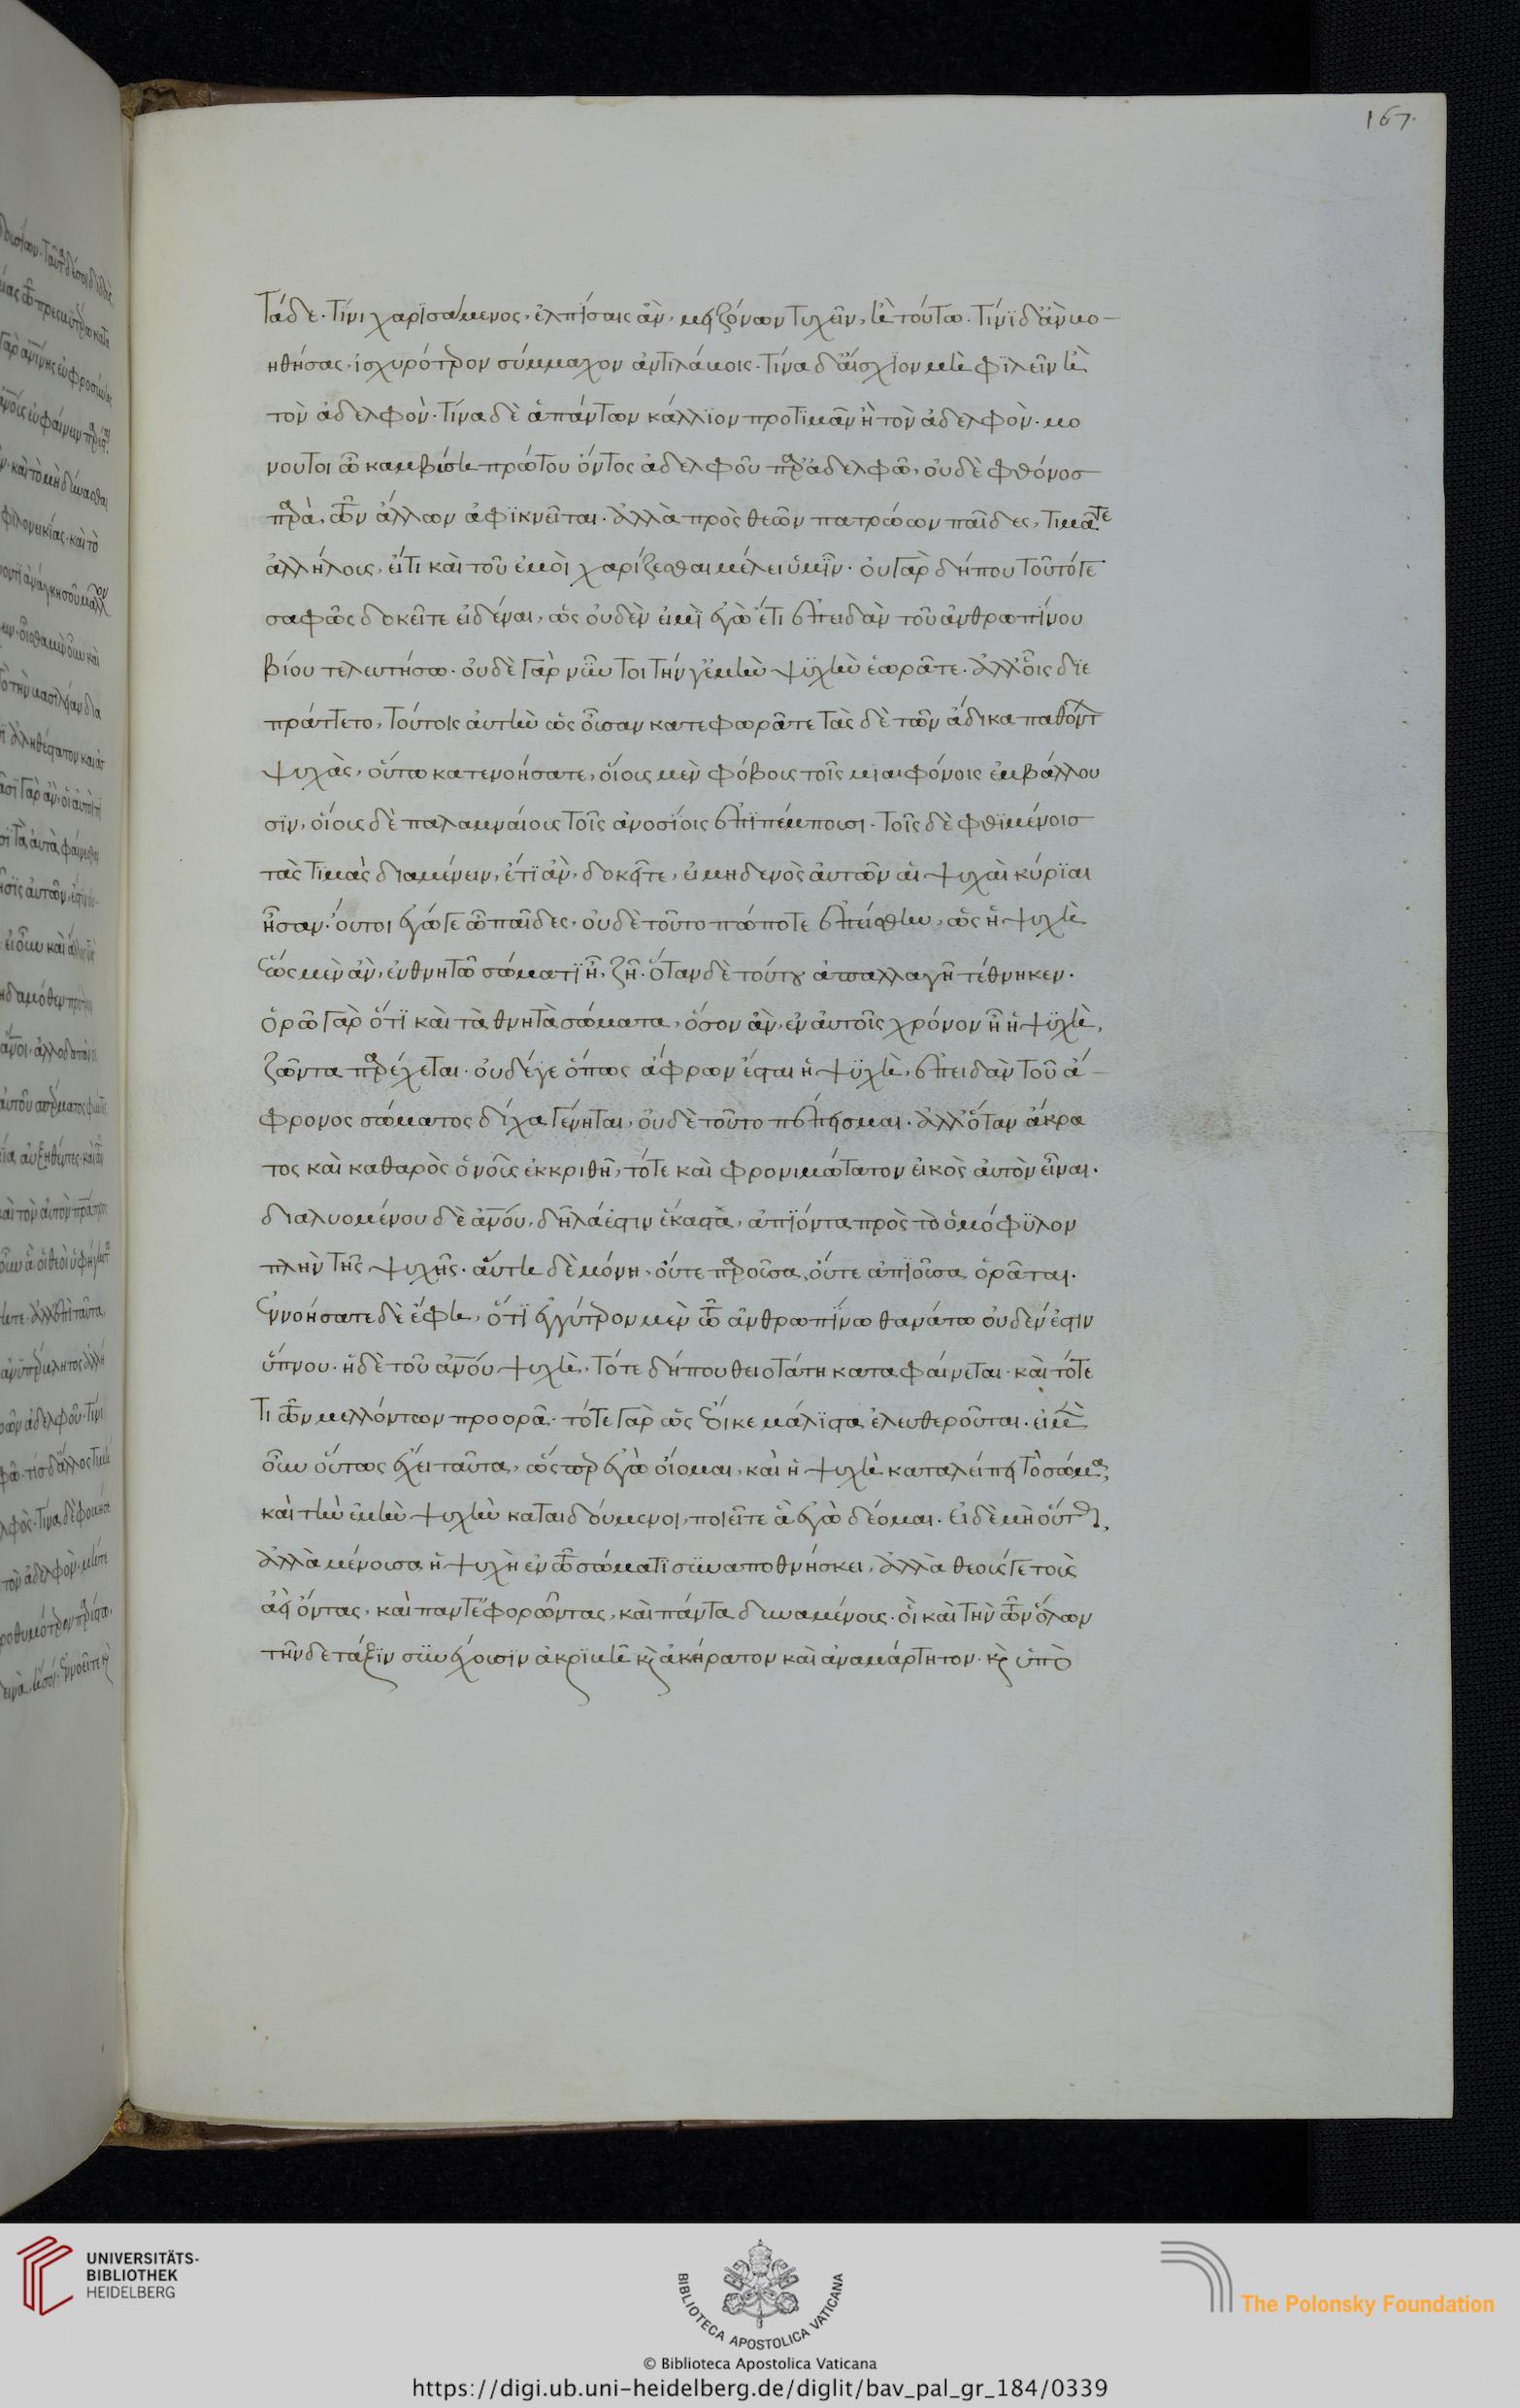 167.
τάδε. τίνι χαρϊσάμενος, ἐλπίσαις ἂν, μειζόνων τυχεῖν, ἢ τούτω. τίνϊ δ' ἂν βο-
ηθήσας, ἰσχυρότερον σύμμαχον ἀντιλάβοις. τίνα δ' αἴσχϊον μὴ φϊλεῖν ἢ
τὸν ἀδελφὸν. τίνα δὲ ἁπάντων κάλλϊον προτϊμᾶν ἢ τὸν ἀδελφὸν. μο
νου τοι ὦ καμβύση πρώτου ὄντος ἀδελφοῦ παρ' ἀδελφῶ, οὐδὲ φθόνοσ
παρὰ τῶν ἄλλων ἀφϊκνεῖται. ἀλλὰ πρὸς θεῶν πατρώων παῖδες, τιμᾶτε
ἀλλήλους, εἴ τι καὶ τοῦ ἐμοὶ χαρίζεσθαι μέλει ὑμῖν. οὐ γὰρ δήπου τοῦτό τε
σαφῶς δοκεῖτε εἰδέναι, ὡς οὐδὲν εἰμὶ ἐγὼ ἔτι ἐπειδὰν τοῦ ἀνθρωπΐνου
βίου τελευτήσω. οὐδὲ γὰρ νῦν τοι τήν γ' ἐμὴν ψυχὴν ἑωρᾶτε. ἀλλ' οἷς διε
πράττετο, τούτοις αὐτὴν ὡς οὖσαν κατεφωρᾶτε τὰς δὲ τῶν ἄδικα παθόντων
ψυχὰς, οὔπω κατενοήσατε, οἵους μὲν φόβους τοῖς μιαιφόνοις ἐμβάλλου
σϊν, οἵους δὲ παλαμναίους τοῖς ἀνοσΐοις ἐπϊπέμπουσι. τοῖς δὲ φθϊμένοισ
τὰς τϊμὰς διαμένειν, ἔτϊ ἂν, δοκεῖτε, εἰ μηδενὸς αὐτῶν αἱ ψυχαὶ κύρϊαι
ἦσαν. οὔτοι ἔγωγε ὦ παῖδες, οὐδὲ τοῦτο πώποτε ἐπείσθην, ὡς ἡ ψυχὴ
ἕως μὲν ἂν, ἐν θνητῶ σώματϊ ἦ, ζῆ. ὅταν δὲ τούτου ἀπαλλαγῆ τέθνηκεν.
ὁρῶ γὰρ ὅτϊ καὶ τὰ θνητὰ σώματα, ὅσον ἂν, ἐν αὐτοῖς χρόνον ἦ ἡ ψϋχὴ,
ζῶντα παρέχεται. οὐδέ γε ὅπως ἄφρων ἔσται ἡ ψϋχὴ, ἐπειδὰν τοῦ ἄ-
φρονος σώματος δίχα γένηται, οὐδὲ τοῦτο πέπεισμαι. ἀλλ' ὅταν ἄκρα
τος καὶ καθαρὸς ὁ νοῦς ἐκκριθῆ, τότε καὶ φρονιμώτατον εἰκὸς αὐτὸν εἶναι.
διαλυομένου δὲ ἀνου, δῆλά ἐστιν ἕκαστα, ἀπϊόντα πρὸς τὸ ὁμόφϋλον
πλὴν τῆς ψυχῆς. αὕτη δὲ μόνη, οὔτε παροῦσα, οὔτε ἀπϊοῦσα ὁρᾶται.
Ἐννοήσατε δὲ ἔφη, ὅτϊ ἐγγύτερον μὲν τῶ ἀνθρωπΐνω θανάτω οὐδέν ἐστιν
ὕπνου. ἡ δὲ τοῦ ἀνου ψυχὴ, τότε δήπου θειοτάτη καταφαίνεται. καὶ τότε
τι τῶν μελλόντων προορᾶ. τότε γὰρ ὡς ἔοικε μάλϊστα ἐλευθεροῦται. εἰ μὲν
οὖν οὕτως ἔχει ταῦτα, ὥσπερ ἐγὼ οἴομαι, καὶ ἡ ψυχὴ καταλείπει τὸ σῶμα,
καὶ τὴν ἐμὴν ψυχὴν καταιδούμενοι, ποιεῖτε ἃ ἐγὼ δέομαι. εἰ δὲ μὴ οὕτως,
ἀλλὰ μένουσα ἡ ψυχὴ ἐν τῶ σώματϊ σϋναποθνήσκει, ἀλλὰ θεούς γε τοὺς
ἀεὶ ὄντας, καὶ πάντ' ἐφορῶντας, καὶ πάντα δυναμένους. οἳ καὶ τὴν τῶν ὅλων
τήνδε τάξϊν σϋνέχουσϊν ἀκρϊβῆ κ ἀκήρατον καὶ ἀναμάρτητον. κ ὑπὸ
UNIVERSITÄTS-
BIBLIOTHEK
HEIDELBERG
BIBLIOTECA APOSTOLICA VATICANA
The Polonsky Foundation
© Biblioteca Apostolica Vaticana
https://digi.ub.uni-heidelberg.de/diglit/bav_pal_gr_184/0339